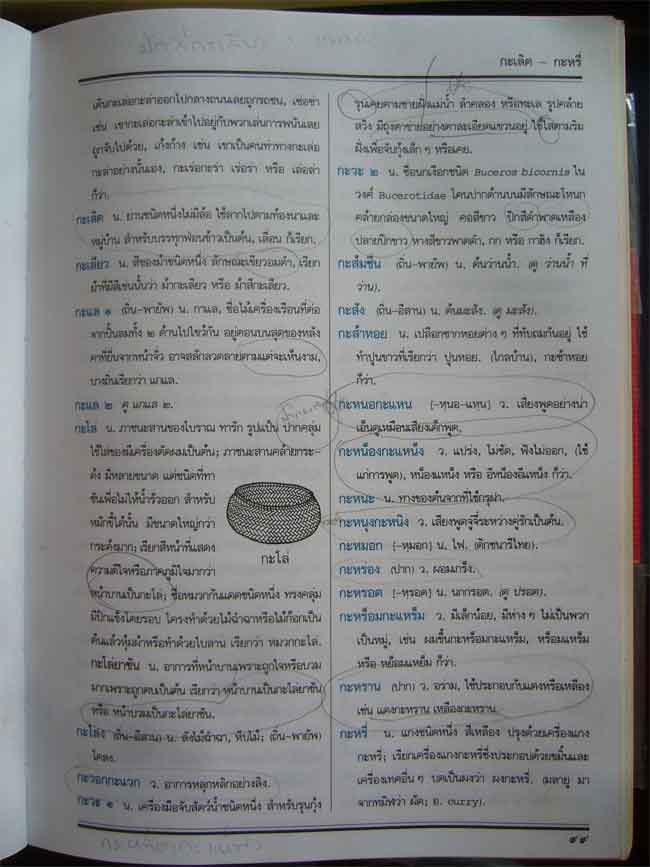 กะเลิด – กะหรี่
เดินกะเล่อกะล่าออกไปกลางถนนเลยถูกรถชน, เซ่อซ่า
เช่น เขากะเล่อกะล่าเข้าไปอยู่กับพวกเล่นการพนันเลย
ถูกจับไปด้วย, เก้งก้าง เช่น เขาเป็นคนท่าทางกะเล่อ
กะล่าอย่างนั้นเอง, กะเร่อกะร่า เร่อร่า หรือ เล่อล่า
ก็ว่า.
กะเลิด น. ยานชนิดหนึ่งไม่มีล้อ ใช้ลากไปตามท้องนาและ
หมู่บ้าน สำหรับบรรทุกฟ่อนข้าวเป็นต้น, เลื่อน ก็เรียก.
กะเลียว น. สีของม้าชนิดหนึ่ง ลักษณะเขียวอมดำ, เรียก
ม้าที่มีสีเช่นนั้นว่า ม้ากะเลียว หรือ ม้าสีกะเลียว.
กะแล ๑ (ถิ่น–พายัพ) น. กาแล, ชื่อไม้เครื่องเรือนที่ต่อ
จากปั้นลมทั้ง ๒ ด้านไปไขว้กัน อยู่ตอนบนสุดของหลัง
คาที่ยื่นจากหน้าจั่ว อาจสลักลวดลายตามแต่จะเห็นงาม,
บางถิ่นเรียกว่า แกแล.
กะแล ๒ ดู แกแล ๒.
กะโล่ น. ภาชนะสานของโบราณ ทารัก รูปเป็น ปากคลุ่ม
ใช้ใส่ของมีเครื่องตัดผมเป็นต้น; ภาชนะสานคล้ายกระ-
ด้ง มีหลายขนาด แต่ชนิดที่ทา
ชันเพื่อไม่ให้น้ำรั่วออก สำหรับ
หมักขี้ไต้นั้น มีขนาดใหญ่กว่า
กระด้งมาก; เรียกสีหน้าที่แสดง
ความดีใจหรือภาคภูมิใจมากว่า
หน้าบานเป็นกะโล่; ชื่อหมวกกันแดดชนิดหนึ่ง ทรงคลุ่ม
มีปีกแข็งโดยรอบ โครงทำด้วยไม้ฉำฉาหรือไม้ก๊อกเป็น
ต้นแล้วหุ้มผ้าหรือทำด้วยใบลาน เรียกว่า หมวกกะโล่.
กะโล่ยาชัน น. อาการที่หน้าบานเพราะถูกใจหรือบวม
มากเพราะถูกตบเป็นต้น เรียกว่า หน้าบานเป็นกะโล่ยาชัน
หรือ หน้าบวมเป็นกะโล่ยาชัน.
กะโล่ง (ถิ่น–อีสาน) น. ลังไม้ฉำฉา, หีบไม้; (ถิ่น–พายัพ)
โคลง.
กะวอกกะแวก ว. อาการหลุกหลิกอย่างลิง.
กะวะ ๑ น. เครื่องมือจับสัตว์น้ำชนิดหนึ่ง สำหรับรุนกุ้ง
กะโล่
รุนเคยตามชายฝั่งแม่น้ำ ลำคลอง หรือทะเล รูปคล้าย
สวิง มีถุงตาข่ายอย่างตาละเอียดแขวนอยู่ ใช้ไสตามริม
ฝั่งเพื่อจับกุ้งเล็ก ๆ หรือเคย.
กะวะ ๒ น. ชื่อนกเงือกชนิด Buceros bicornis ใน
วงศ์ Bucerotidae โคนปากด้านบนมีลักษณะโหนก
คล้ายกล่องขนาดใหญ่ คอสีขาว ปีกสีดำพาดเหลือง
ปลายปีกขาว หางสีขาวพาดดำ, กก หรือ กาฮัง ก็เรียก.
กะส้มชื่น (ถิ่น–พายัพ) น. ต้นว่านน้ำ. (ดู ว่านน้ำ ที่
ว่าน).
กะสัง (ถิ่น–อีสาน) น. ต้นมะสัง. (ดู มะสัง).
กะสำหอย น. เปลือกซากหอยต่าง ๆ ที่ทับถมกันอยู่ ใช้
ทำปูนขาวที่เรียกว่า ปูนหอย. (ไกลบ้าน), กะซำหอย
ก็ว่า.
กะหนอกะแหน [–หฺนอ–แหฺน] ว. เสียงพูดอย่างน่า
เอ็นดูเหมือนเสียงเด็กพูด.
กะหน็องกะแหน็ง ว. แปร่ง, ไม่ชัด, ฟังไม่ออก, (ใช้
แก่การพูด), หน็องแหน็ง หรือ อีหน็องอีแหน็ง ก็ว่า.
กะหนะ น. ทางของต้นจากที่ใช้กรุฝา.
กะหนุงกะหนิง ว. เสียงพูดจู๋จี๋ระหว่างคู่รักเป็นต้น.
กะหมอก [–หฺมอก] น. ไฟ. (ดิกชนารีไทย).
กะหรอง (ปาก) ว. ผอมเกร็ง.
กะหรอด [–หฺรอด] น. นกกรอด. (ดู ปรอด).
กะหร็อมกะแหร็ม ว. มีเล็กน้อย, มีห่าง ๆ ไม่เป็นพวก
เป็นหมู่, เช่น ผมขึ้นกะหร็อมกะแหร็ม, หร็อมแหร็ม
หรือ หย็อมแหย็ม ก็ว่า.
กะหราน (ปาก) ว. อร่าม, ใช้ประกอบกับแดงหรือเหลือง
เช่น แดงกะหราน เหลืองกะหราน.
กะหรี่ น. แกงชนิดหนึ่ง สีเหลือง ปรุงด้วยเครื่องแกง
กะหรี่; เรียกเครื่องแกงกะหรี่ซึ่งประกอบด้วยขมิ้นและ
เครื่องเทศอื่น ๆ บดเป็นผงว่า ผงกะหรี่. (มลายู มา
จากทมิฬว่า ผัด; อ. curry).
๙๙